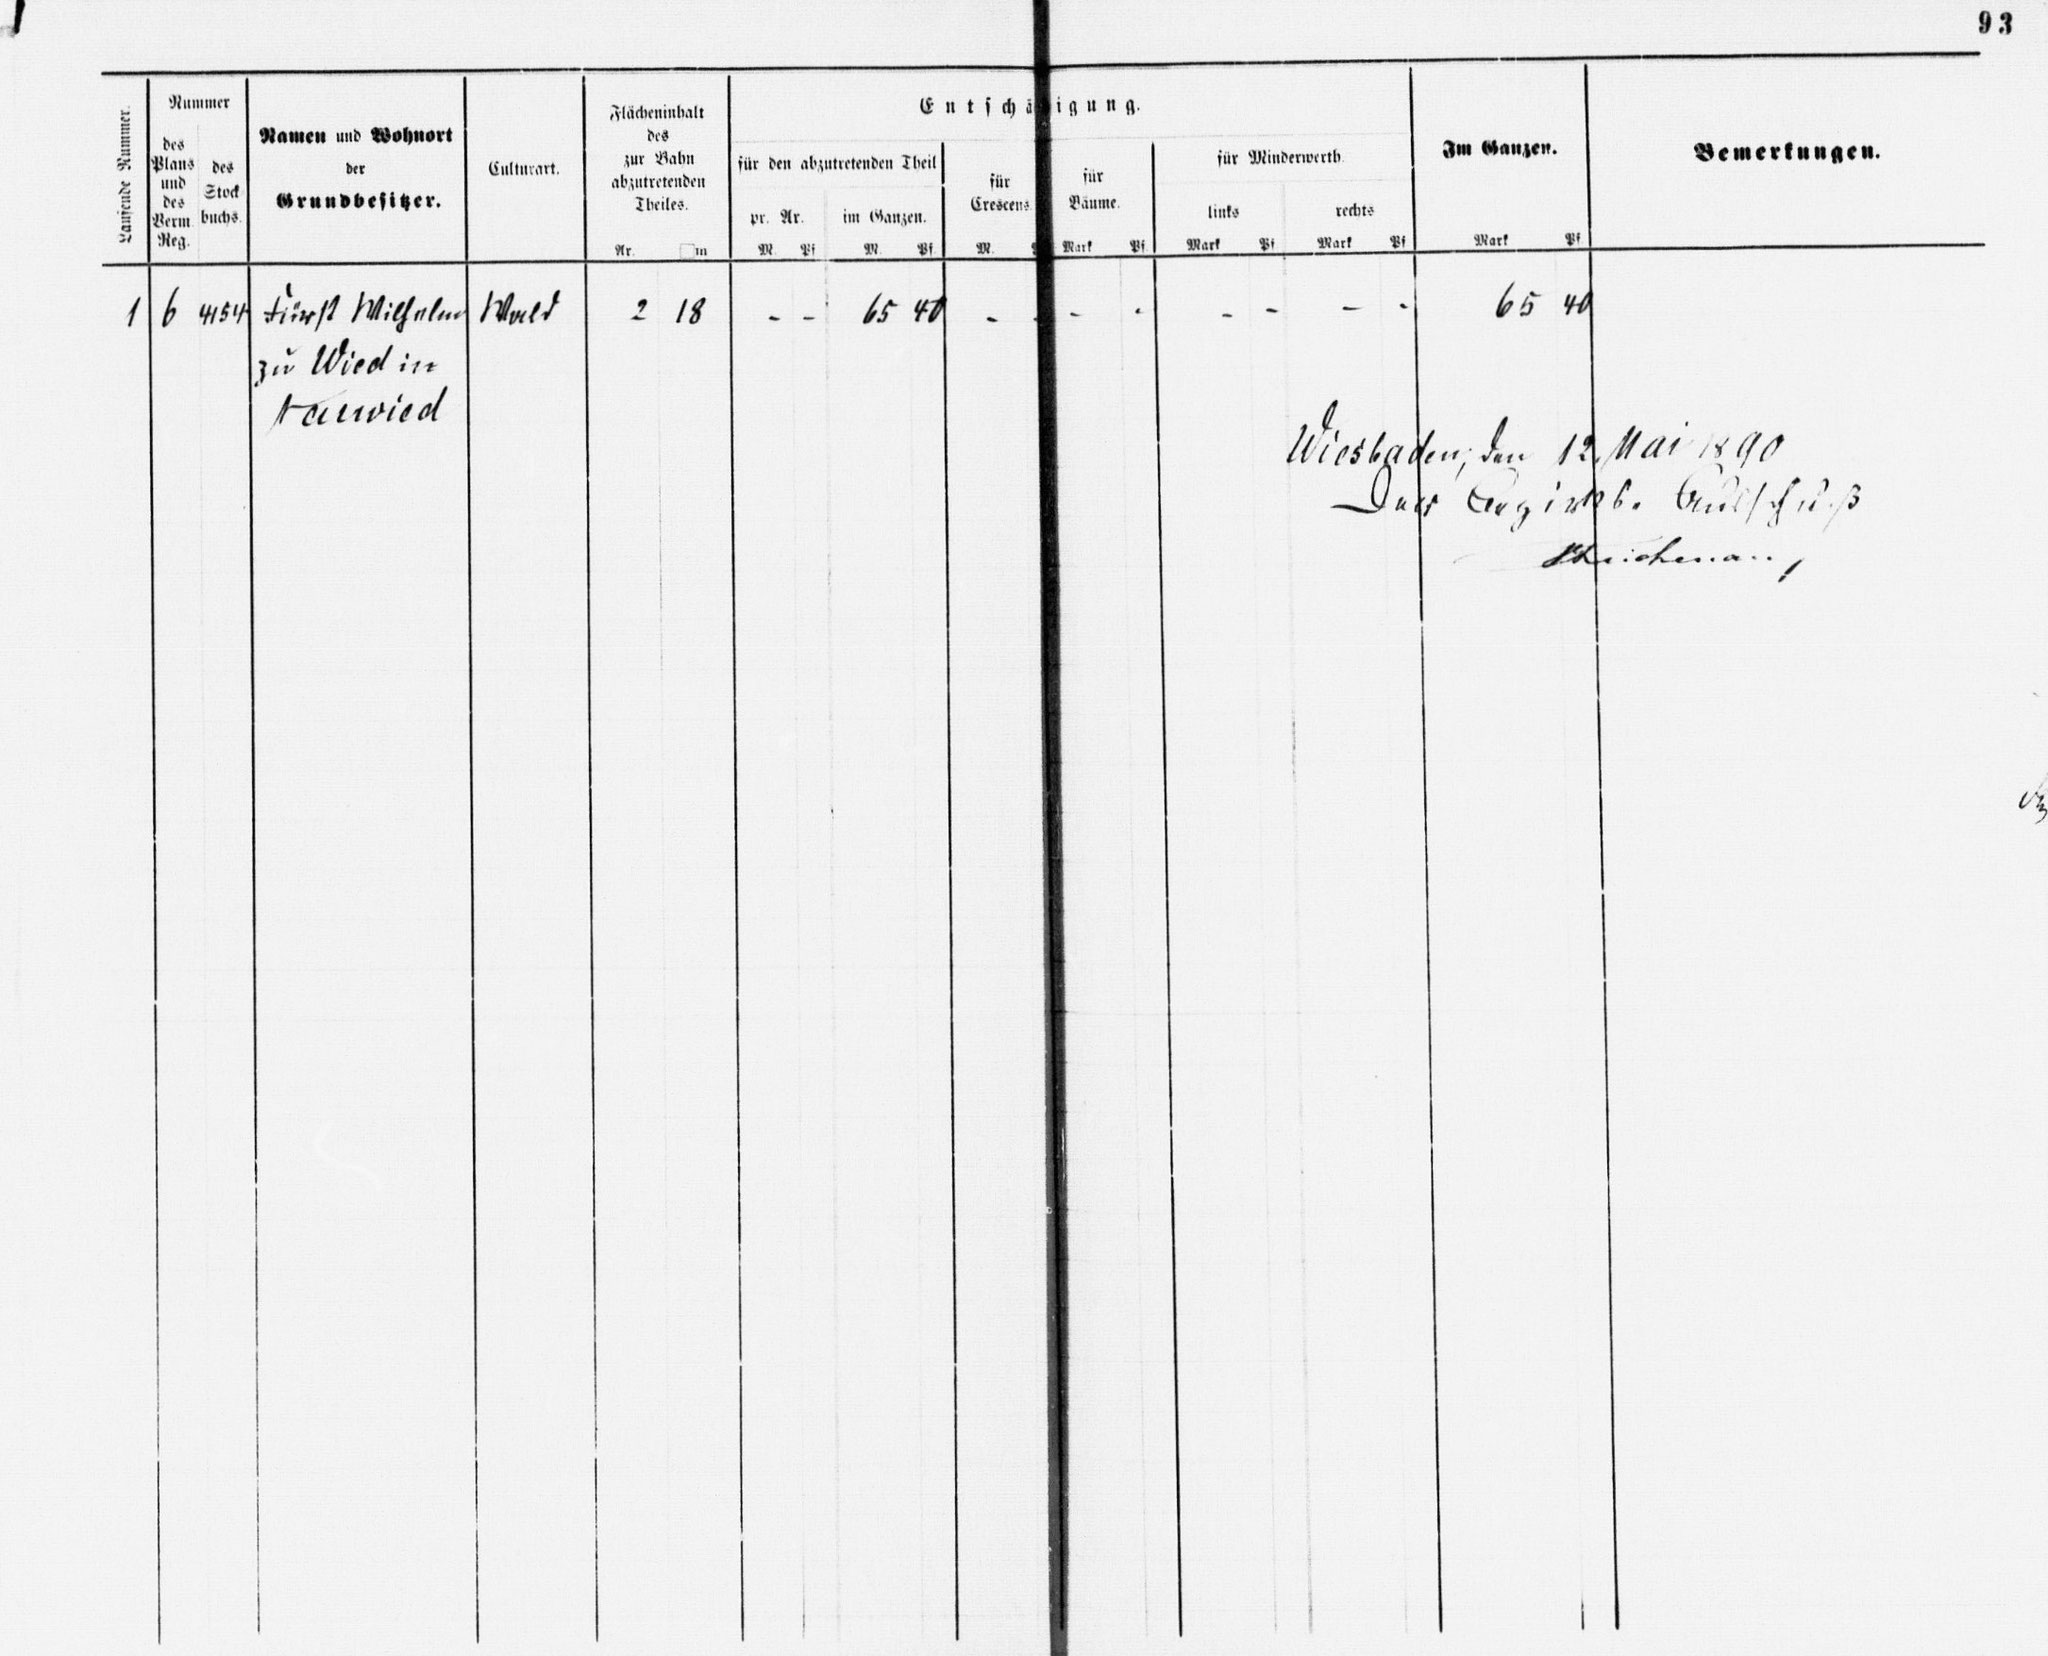 93
Laufende Nummer.
Nummer
des Plans und des Verm. Reg.
des Stock buchs.
Namen und Wohnort
der
Grundbesitzer.
Culturart.
Flächeninhalt
des
zur Bahn
abzutretenden
Theiles.
Ar. □m
Entschädigung.
für den abzutretenden Theil
pr. Ar.
M. Pf
im Ganzen.
M. Pf.
für
Crescens.
M.
für
Bäume.
Mark Pf
für Minderwerth.
links
Mark Pf
rechts
Mark Pf
Im Ganzen.
Mark Pf
Bemerkungen.
1 6 4154 Fürst Wilhelm Wald 2 18 - - 65 40 - - - - - - - - 65 40
zu Wied in
Neuwied
Wiesbaden, den 12. Mai 1890
Der Bezirks-Ausschuß